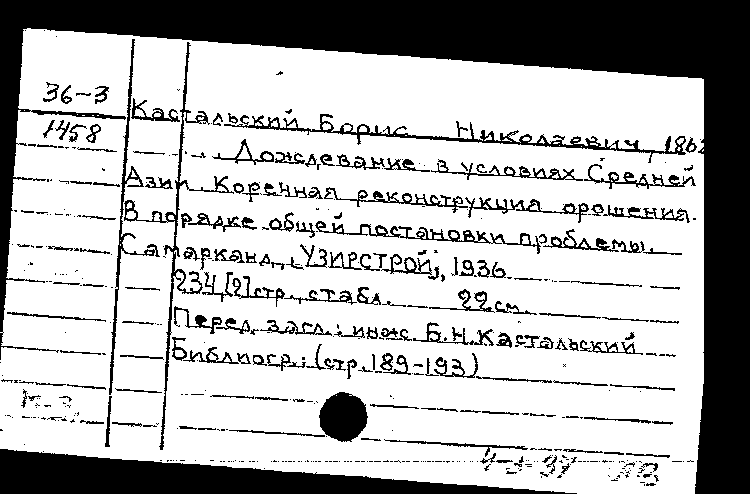 36-3
1458
Кастальский, Борис Николаевич, 1862
... Дождевание в условиях Средней
Азии. Коренная реконструкция орошения.
В порядке общей постановки проблемы.
Самарканд, "УЗИРСТРОЙ", 1936
234,[2]стр., с табл. 22 см.
Перед загл.: инж. Б.Н.Кастальский
Библиогр.: (стр.189-193)